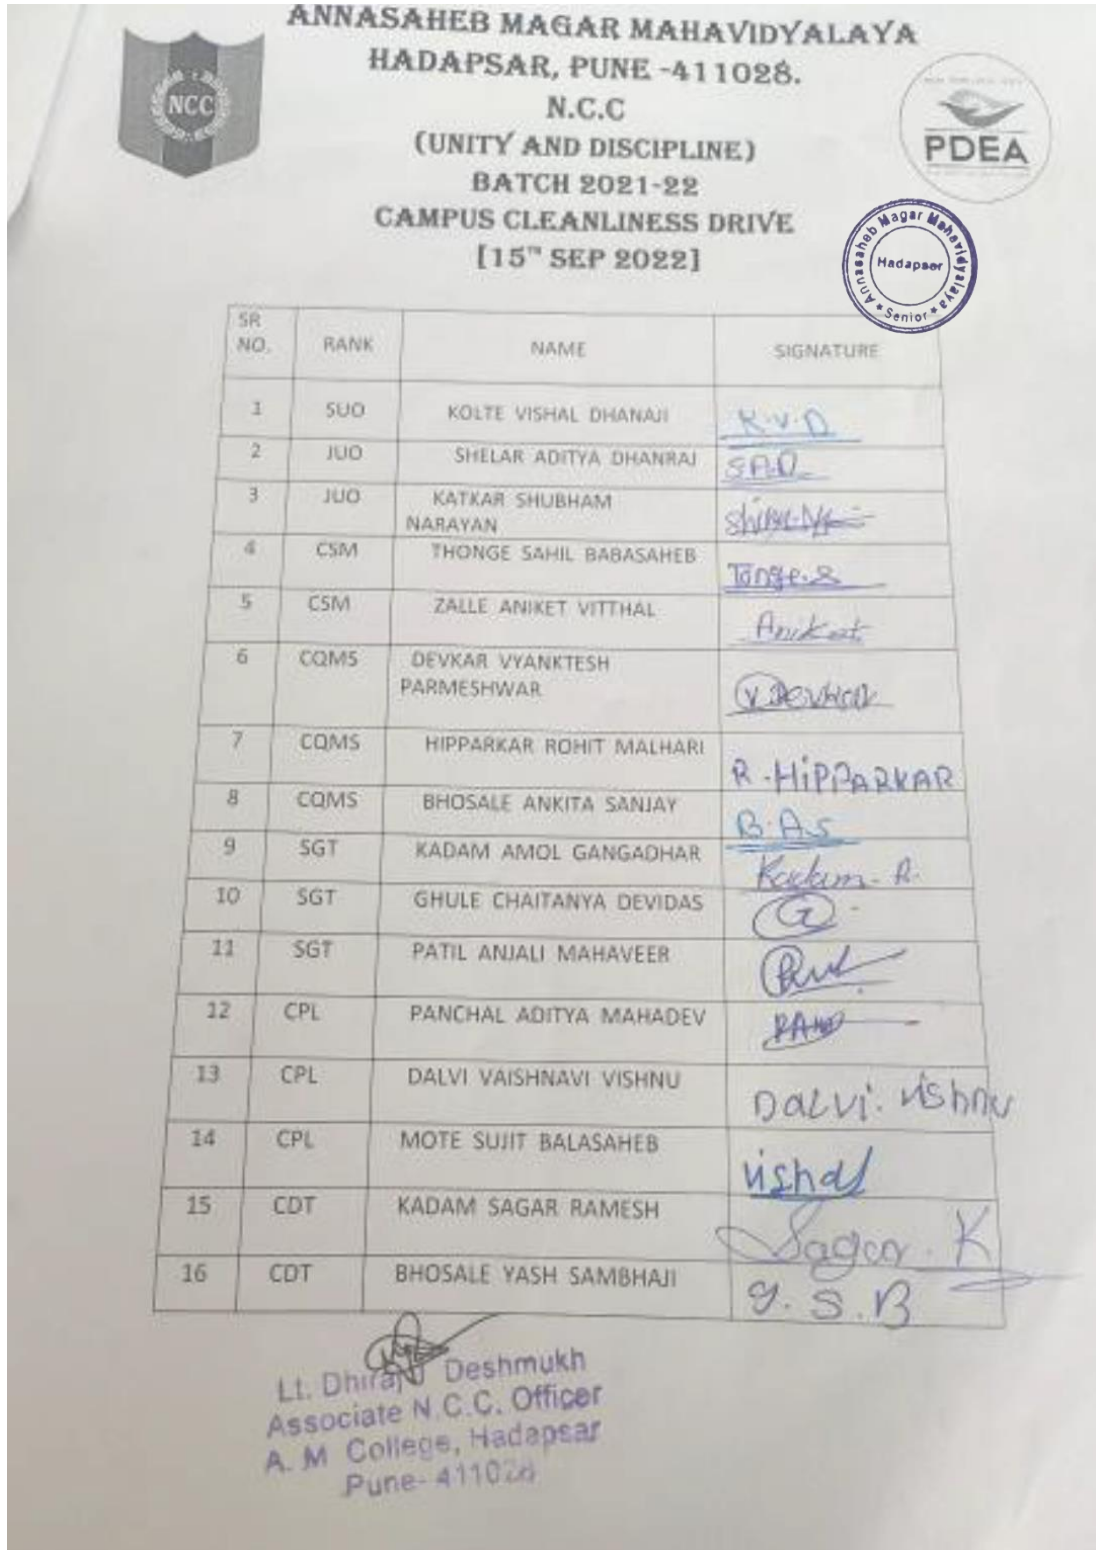 ANNASAHEB MAGAR MAHAVIDYALAYA
HADAPSAR, PUNE -411028.
NCC
N.C.C
(UNITY AND DISCIPLINE)
PDEA
BATCH 2021-22
CAMPUS CLEANLINESS DRIVE
[15TH SEP 2022]
Annasaheb Magar Mahavidyalaya
Hadapser
* Senior *
SR NO. RANK NAME SIGNATURE
1 SUO KOLTE VISHAL DHANAJI K.V.D
2 JUO SHELAR ADITYA DHANRAJ S.A.D
3 JUO KATKAR SHUBHAM
NARAYAN
4 CSM THONGE SAHIL BABASAHEB Tonge.S
5 CSM ZALLE ANIKET VITTHAL Aniket
6 CQMS DEVKAR VYANKTESH
PARMESHWAR
7 CQMS HIPPARKAR ROHIT MALHARI R.HiPPARKAR
8 CQMS BHOSALE ANKITA SANJAY B.A.S
9 SGT KADAM AMOL GANGADHAR Kadam. A.
10 SGT GHULE CHAITANYA DEVIDAS G
11 SGT PATIL ANJALI MAHAVEER
12 CPL PANCHAL ADITYA MAHADEV
13 CPL DALVI VAISHNAVI VISHNU DALVi. viShnu
14 CPL MOTE SUJIT BALASAHEB vishal
15 CDT KADAM SAGAR RAMESH Sagar. K
16 CDT BHOSALE YASH SAMBHAJI Y. S. B
Lt. Dhiraj Deshmukh
Associate N.C.C. Officer
A. M College, Hadapsar
Pune- 411028